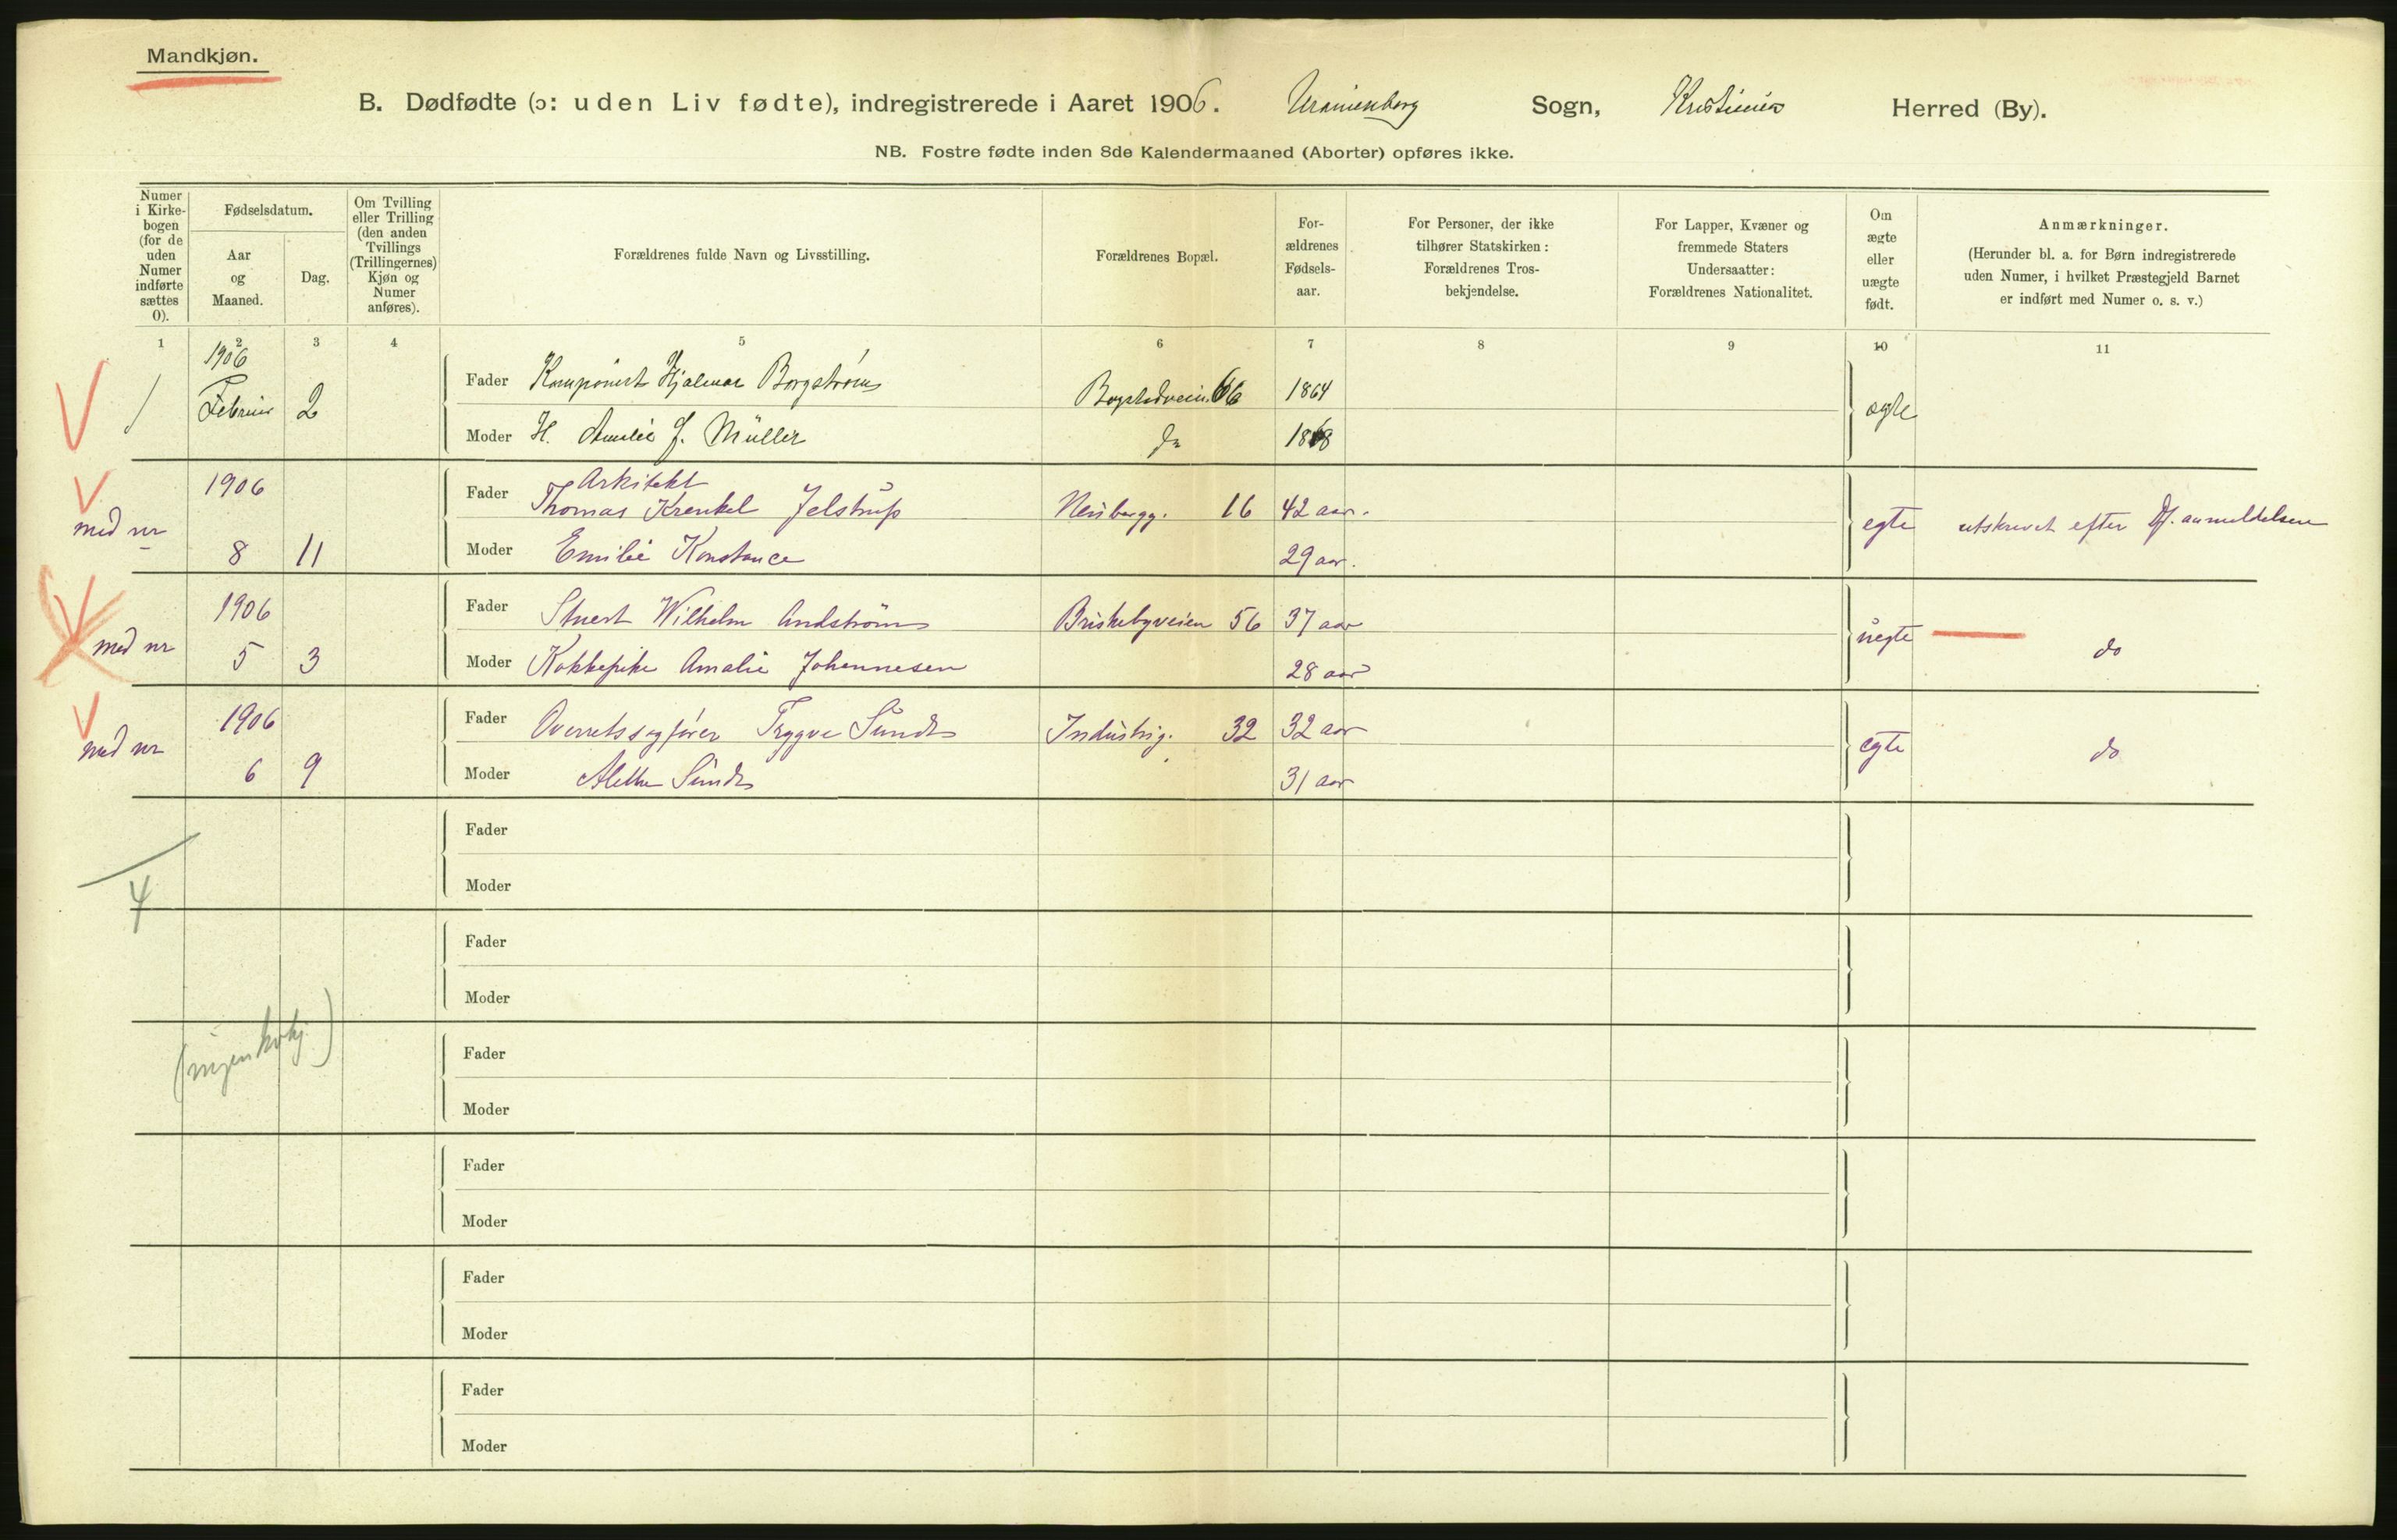 Mandkjøn.
B. Dødfødte (ɔ: uden Liv fødte), indregistrerede i Aaret 1906. Uranienborg Sogn, Kristiania Herred (By).
NB. Fostre fødte inden 8de Kalendermaaned (Aborter) opføres ikke.
Numer i Kirke-bogen (for de uden Numer indførte sættes 0).
Fødselsdatum.
Aar og Maaned.
Dag.
Om Tvilling eller Trilling (den anden Tvillings (Trillingernes) Kjøn og Numer anføres).
Forældrenes fulde Navn og Livsstilling.
Forældrenes Bopæl.
For-ældrenes Fødsels-aar.
For Personer, der ikke tilhører Statskirken: Forældrenes Tros-bekjendelse.
For Lapper, Kvæner og fremmede Staters Undersaatter: Forældrenes Nationalitet.
Om ægte eller uægte født.
Anmærkninger.
(Herunder bl. a. for Børn indregistrerede uden Numer, i hvilket Præstegjeld Barnet er indført med Numer o. s. v.)
1 2 3 4 5 6 7 8 9 10 11
1906
1 Februar 2 Fader Komponist Hjalmar Borgstrøm Bogstadveien 66 1864 ægte
Moder H. Amalie J. Müller do 1868
1906 Arkitekt
Fader Thomas Krenkel Jelstrup Neubergg. 16 42 aar. egte utskrevet efter Df. anmeldelsen
med nr 8 11 Moder Emilie Konstance 29 aar.
1906 Fader Stuert Wilhelm Andstrøm Briskebyveien 56 37 aar uegte do
med nr 5 3 Moder Kokkepike Amalie Johannesen 28 aar
1906 Fader Overretssagfører Trygve Sunde Industrig. 32 32 aar egte do
med nr 6 9 Moder Alethe Sunde 31 aar
Fader
Moder
4
Fader
Moder
(ingen kvkj.)
Fader
Moder
Fader
Moder
Fader
Moder
Fader
Moder